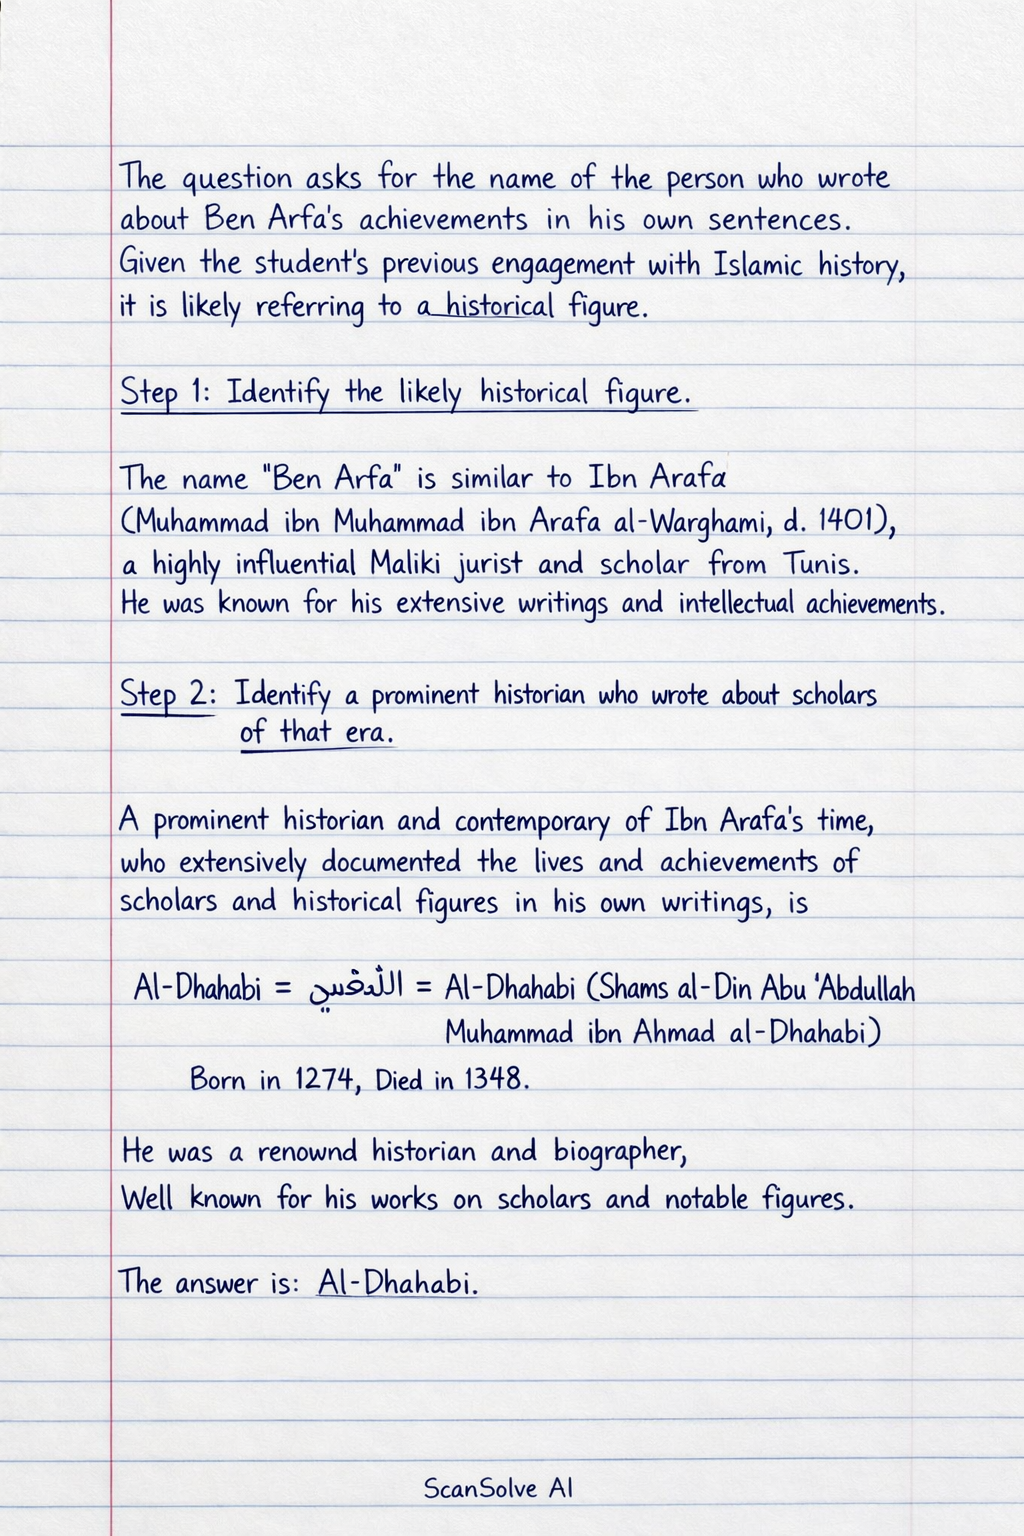 The question asks for the name of the person who wrote
about Ben Arfa's achievements in his own sentences.
Given the student's previous engagement with Islamic history,
it is likely referring to a historical figure.
Step 1: Identify the likely historical figure.
The name "Ben Arfa" is similar to Ibn Arafa
(Muhammad ibn Muhammad ibn Arafa al-Warghami, d. 1401),
a highly influential Maliki jurist and scholar from Tunis.
He was known for his extensive writings and intellectual achievements.
Step 2: Identify a prominent historian who wrote about scholars
of that era.
A prominent historian and contemporary of Ibn Arafa's time,
who extensively documented the lives and achievements of
scholars and historical figures in his own writings, is
Al-Dhahabi = = Al-Dhahabi (Shams al-Din Abu 'Abdullah
Muhammad ibn Ahmad al-Dhahabi)
Born in 1274, Died in 1348.
He was a renownd historian and biographer,
Well known for his works on scholars and notable figures.
The answer is: Al-Dhahabi.
ScanSolve AI